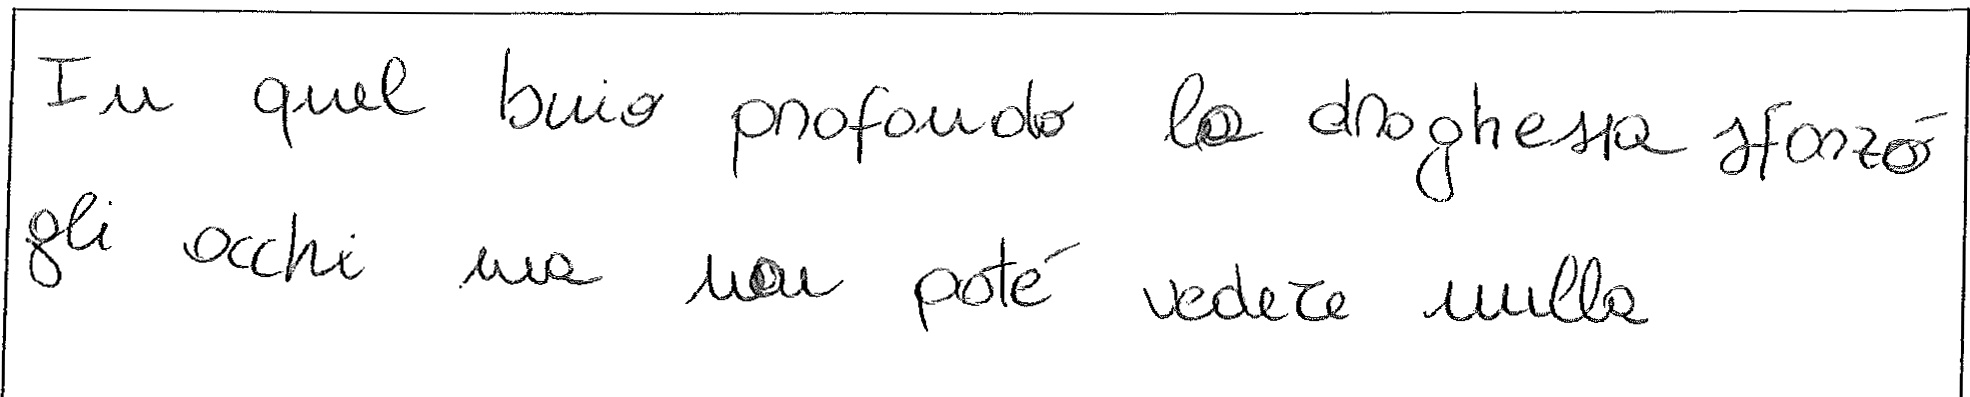 In quel buio profondo la droghessa sforzó
gli occhi ma non poté vedere nulla